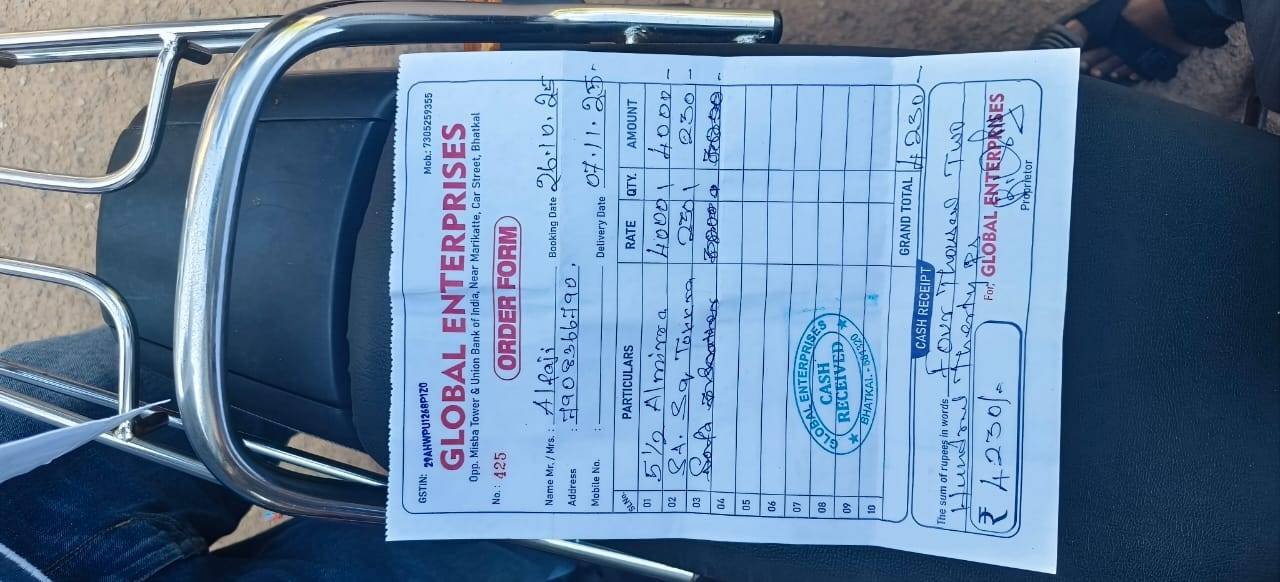 GSTIN: 29AHWPU1268P1Z0 Mob.: 7305259355
GLOBAL ENTERPRISES
Opp. Misba Tower & Union Bank of India, Near Marikatte, Car Street, Bhatkal
No.: 425 ORDER FORM
Name Mr. / Mrs.: Alfaji Booking Date 26.10.25
Address : 7908366790
Mobile No. : Delivery Date 07.11.25.
Sr.No. PARTICULARS RATE QTY. AMOUNT
01 5 1/2 Almirra 4000 1 4000 -
02 230 1 230 -
03
04
05
06
07
08
09
10
GLOBAL ENTERPRISES
CASH
RECEIVED
BHATKAL - 581320
GRAND TOTAL 4230 -
CASH RECEIPT
The sum of rupees in words Four Thousand Two
Hundred Therty Rs
₹ 4230/-
For, GLOBAL ENTERPRISES
Proprietor